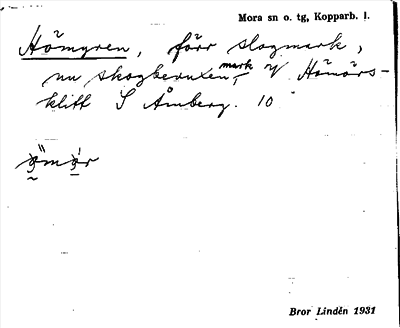 Mora sn o. tg, Kopparb. l.
Hömyren, förr slogmark,
nu skogberuxen mark V Hömörs-
klitt S Åmberg. 10
Bror Lindén 1931